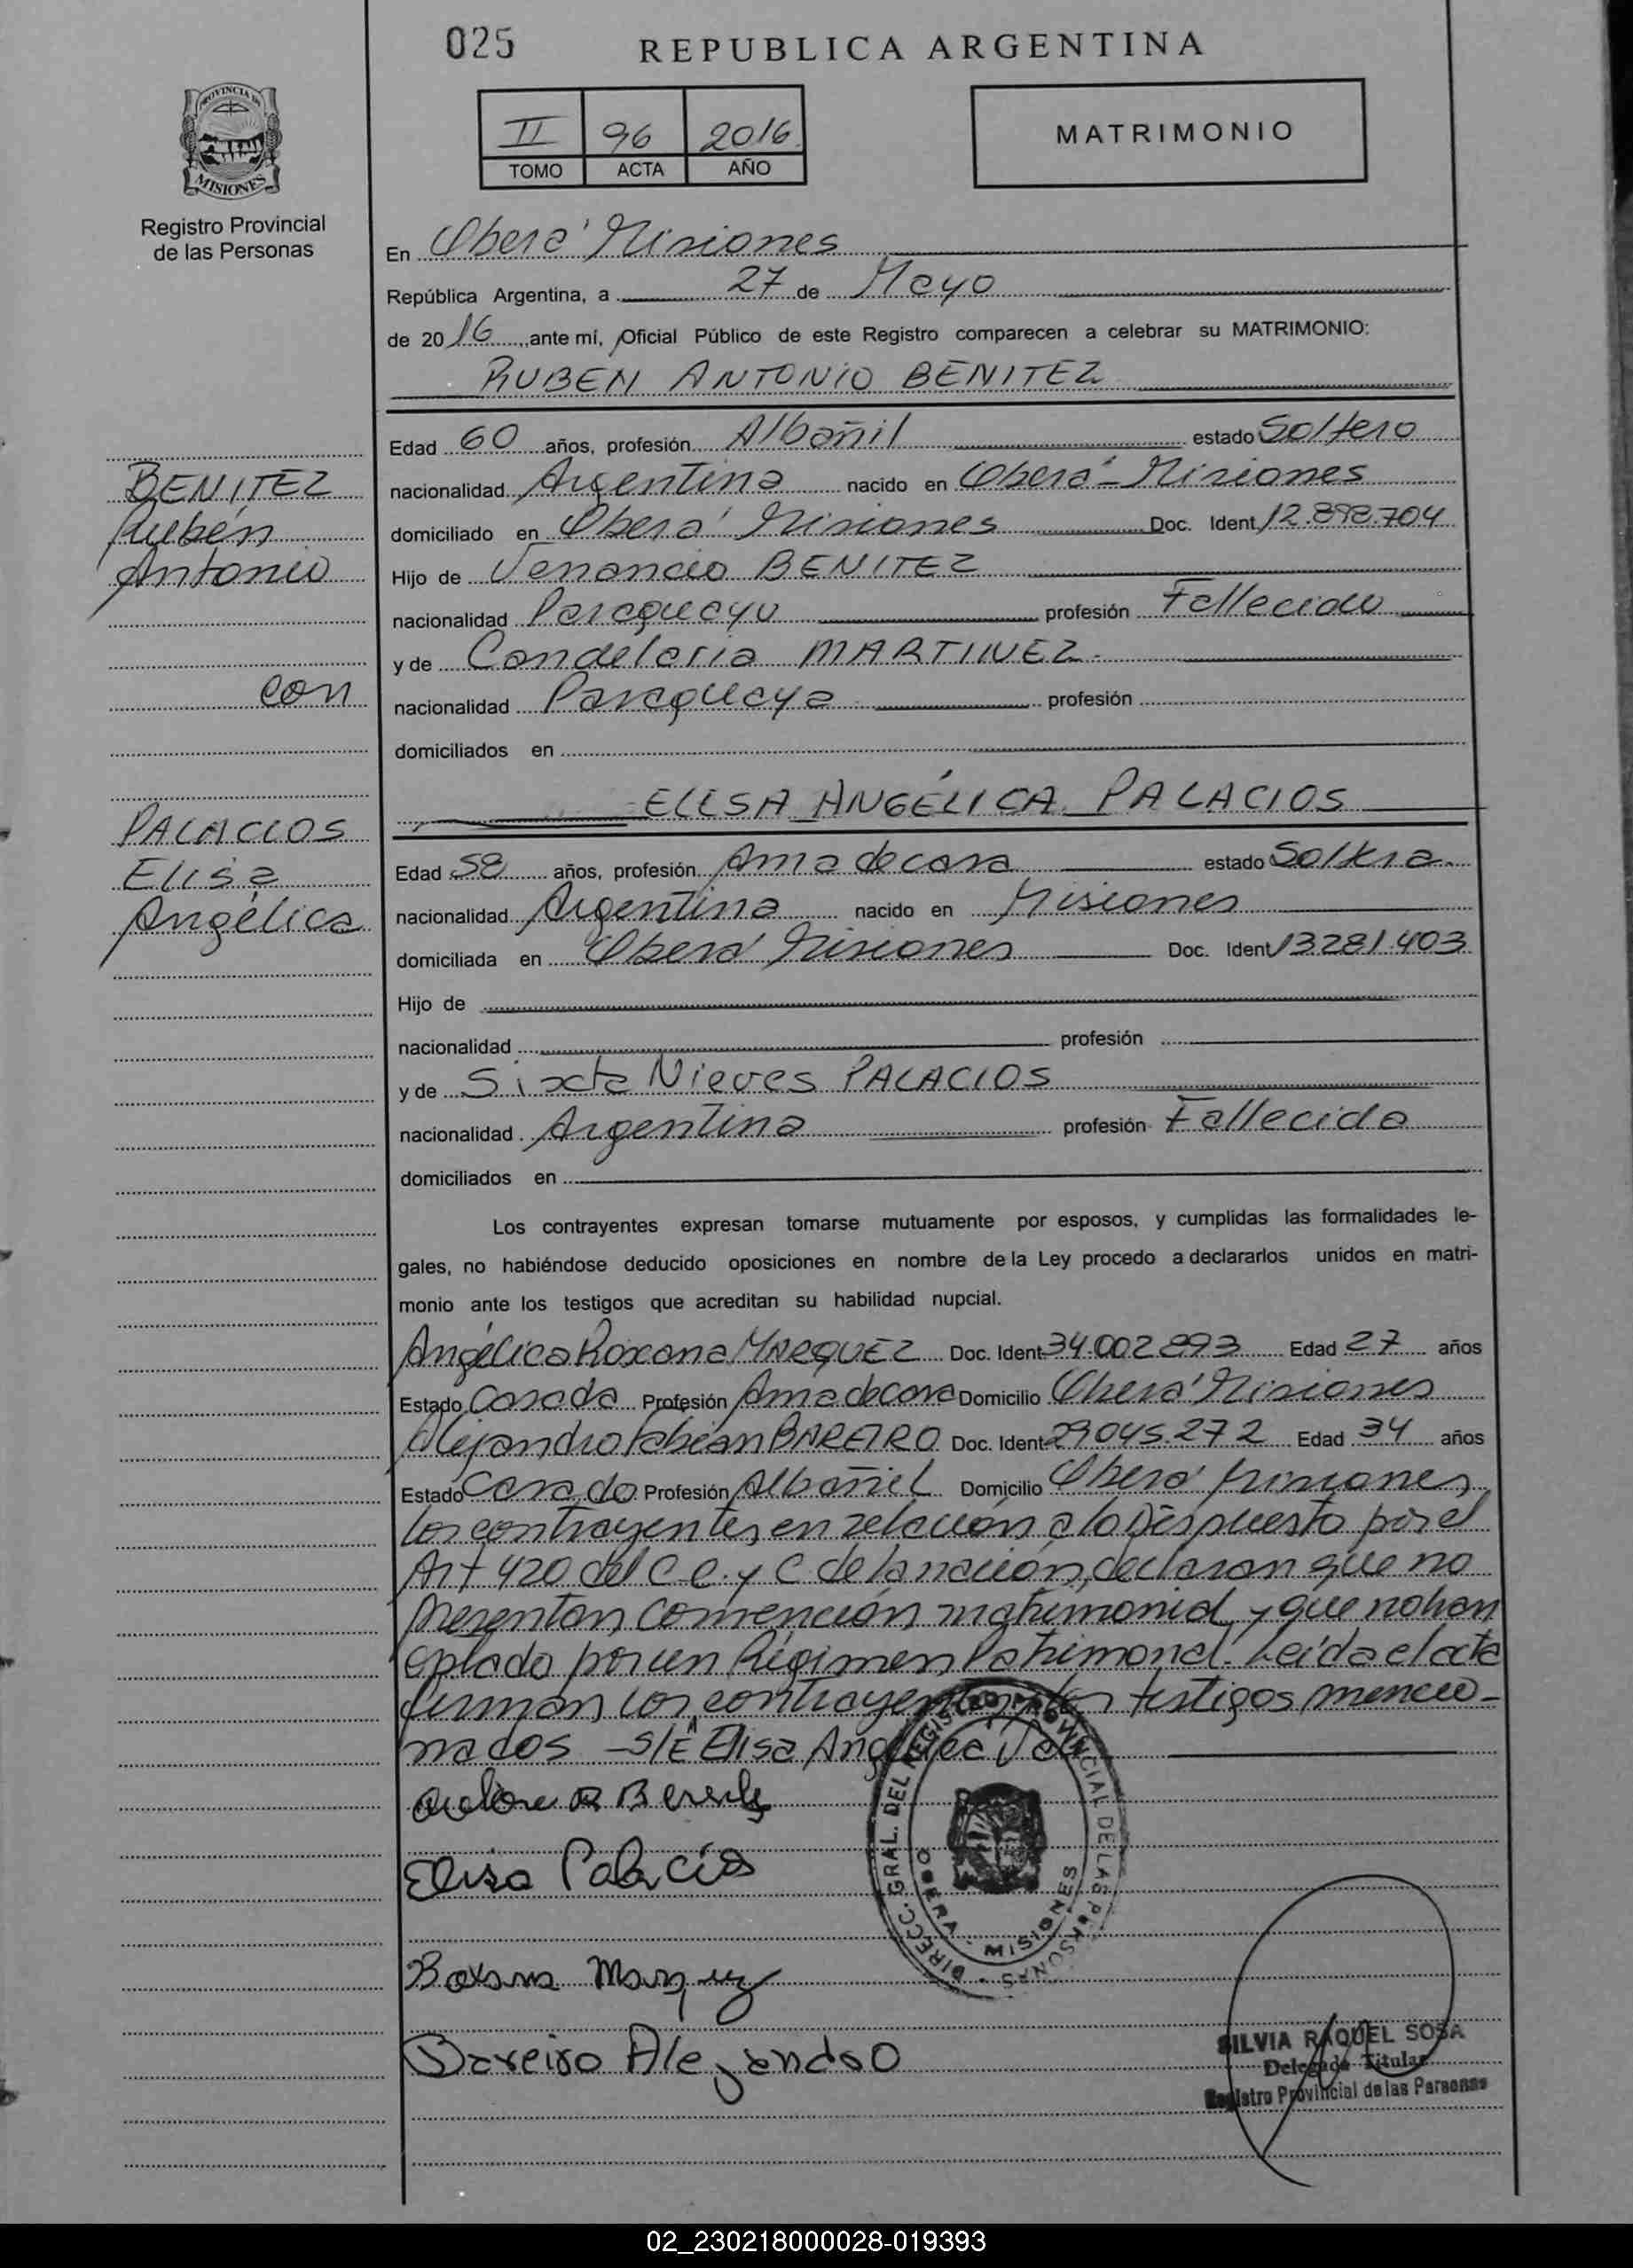 025
REPUBLICA ARGENTINA
II 96 2016
TOMO ACTA AÑO
MATRIMONIO
PROVINCIA DE
MISIONES
Registro Provincial
de las Personas
En Oberá Misiones
República Argentina, a 27 de Mayo
de 2016, ante mí, Oficial Público de este Registro comparecen a celebrar su MATRIMONIO:
RUBEN ANTONIO BENITEZ
Edad 60 años, profesión Albañil estado Soltero
nacionalidad Argentina nacido en Oberá - Misiones
domiciliado en Oberá Misiones Doc. Ident. 12.898.704
Hijo de Venancio BENITEZ
nacionalidad Paraguayo profesión Fallecido
y de Candelaria MARTINEZ.
nacionalidad Paraguaya profesión
domiciliados en
BENITEZ
Rubén
Antonio
con
PALACIOS
Elisa
Angélica
ELISA ANGÉLICA PALACIOS
Edad 58 años, profesión Ama de casa estado Soltera.
nacionalidad Argentina nacido en Misiones
domiciliada en Oberá Misiones Doc. Ident. 13281.403
Hijo de
nacionalidad profesión
y de Sixta Nieves PALACIOS
nacionalidad Argentina profesión Fallecida
domiciliados en
Los contrayentes expresan tomarse mutuamente por esposos, y cumplidas las formalidades le-
gales, no habiéndose deducido oposiciones en nombre de la Ley procedo a declararlos unidos en matri-
monio ante los testigos que acreditan su habilidad nupcial.
Angélica Roxana MARQUEZ Doc. Ident. 34.002.893 Edad 27 años
Estado Casada Profesión Ama de casa Domicilio Oberá Misiones
Alejandro Fabián BAREIRO Doc. Ident. 29.045.272 Edad 34 años
Estado Casado Profesión Albañil Domicilio Oberá Misiones,
los contrayentes, en relación a lo Dispuesto por el
Art 420 del C.C. y C de la nación, declaran que no
presentan convención matrimonial y que no han
optado por un Régimen Patrimonial. Leída el acta
firman los contrayentes y los testigos mencio-
nados - S/E Elisa Angélica
Elisa Palacios
Roxana Marquez
Bareiro Alejandro
DIRECC. GRAL. DEL REGISTRO PROVINCIAL DE LAS PERSONAS
OBERA - MISIONES
SILVIA RAQUEL SOSA
Delegada Titular
Registro Provincial de las Personas
02_230218000028-019393